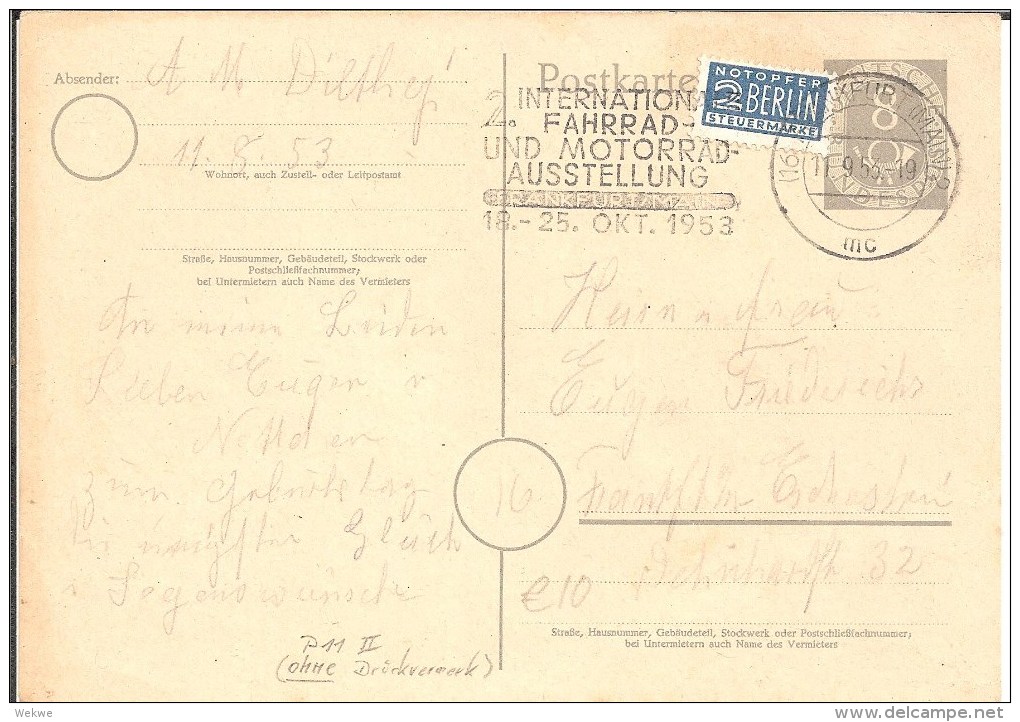 Absender: A M Dilthey
11. 9. 53
Wohnort, auch Zustell- oder Leitpostamt
Straße, Hausnummer, Gebäudeteil, Stockwerk oder
Postschließfachnummer;
bei Untermietern auch Name des Vermieters
An meine Beiden
Lieben Eugen u
zum Geburtstag
Glück
u Segenswünsche
P 11 II
(ohne Druckvermerk)
Postkarte
2. INTERNATIONALE
FAHRRAD-
UND MOTORRAD-
AUSSTELLUNG
FRANKFURT/MAIN
18.-25. OKT. 1953
NOTOPFER
2 BERLIN
STEUERMARKE
8
(MAIN) 2
9.53.-19
mc
Eugen Friederichs
16
32
€10
Straße, Hausnummer, Gebäudeteil, Stockwerk oder Postschließfachnummer;
bei Untermietern auch Name des Vermieters
Wekwe
delcampe.net